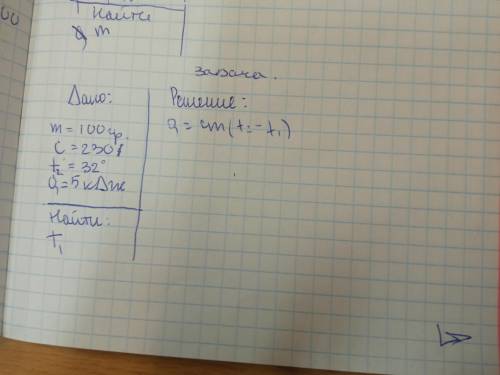 Найти
Q m
Задача.
Дано:
m = 100 гр.
C = 230
t₂ = 32°
Q = 5 кДж
Найти:
t₁
Решение:
Q = cm(t₂ - t₁)